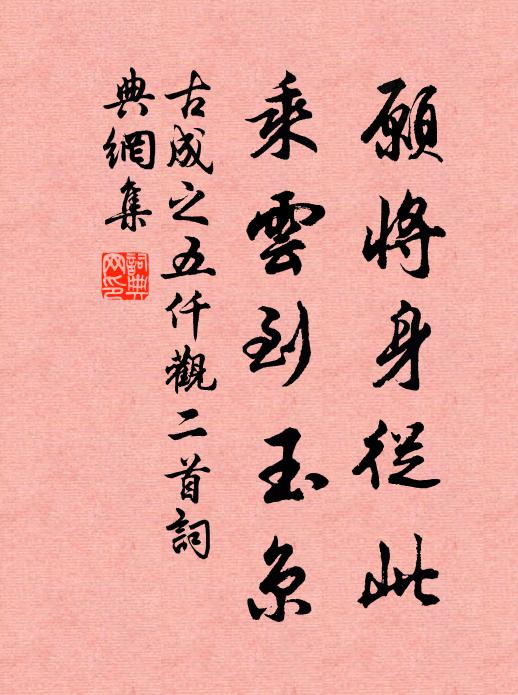 願將身從此
乘雲到玉京
古成之五仟觀二首詞
典網集
詞典網印